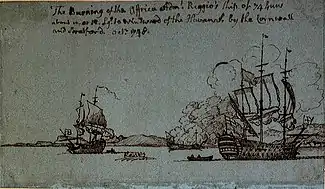 The Burning of the Affrica Adml. Reggio's Ship of 74 Guns
about 10 or 12 Lgs to Windward of the Havannah by the Cornwall
and Strafford. Oct 1748.